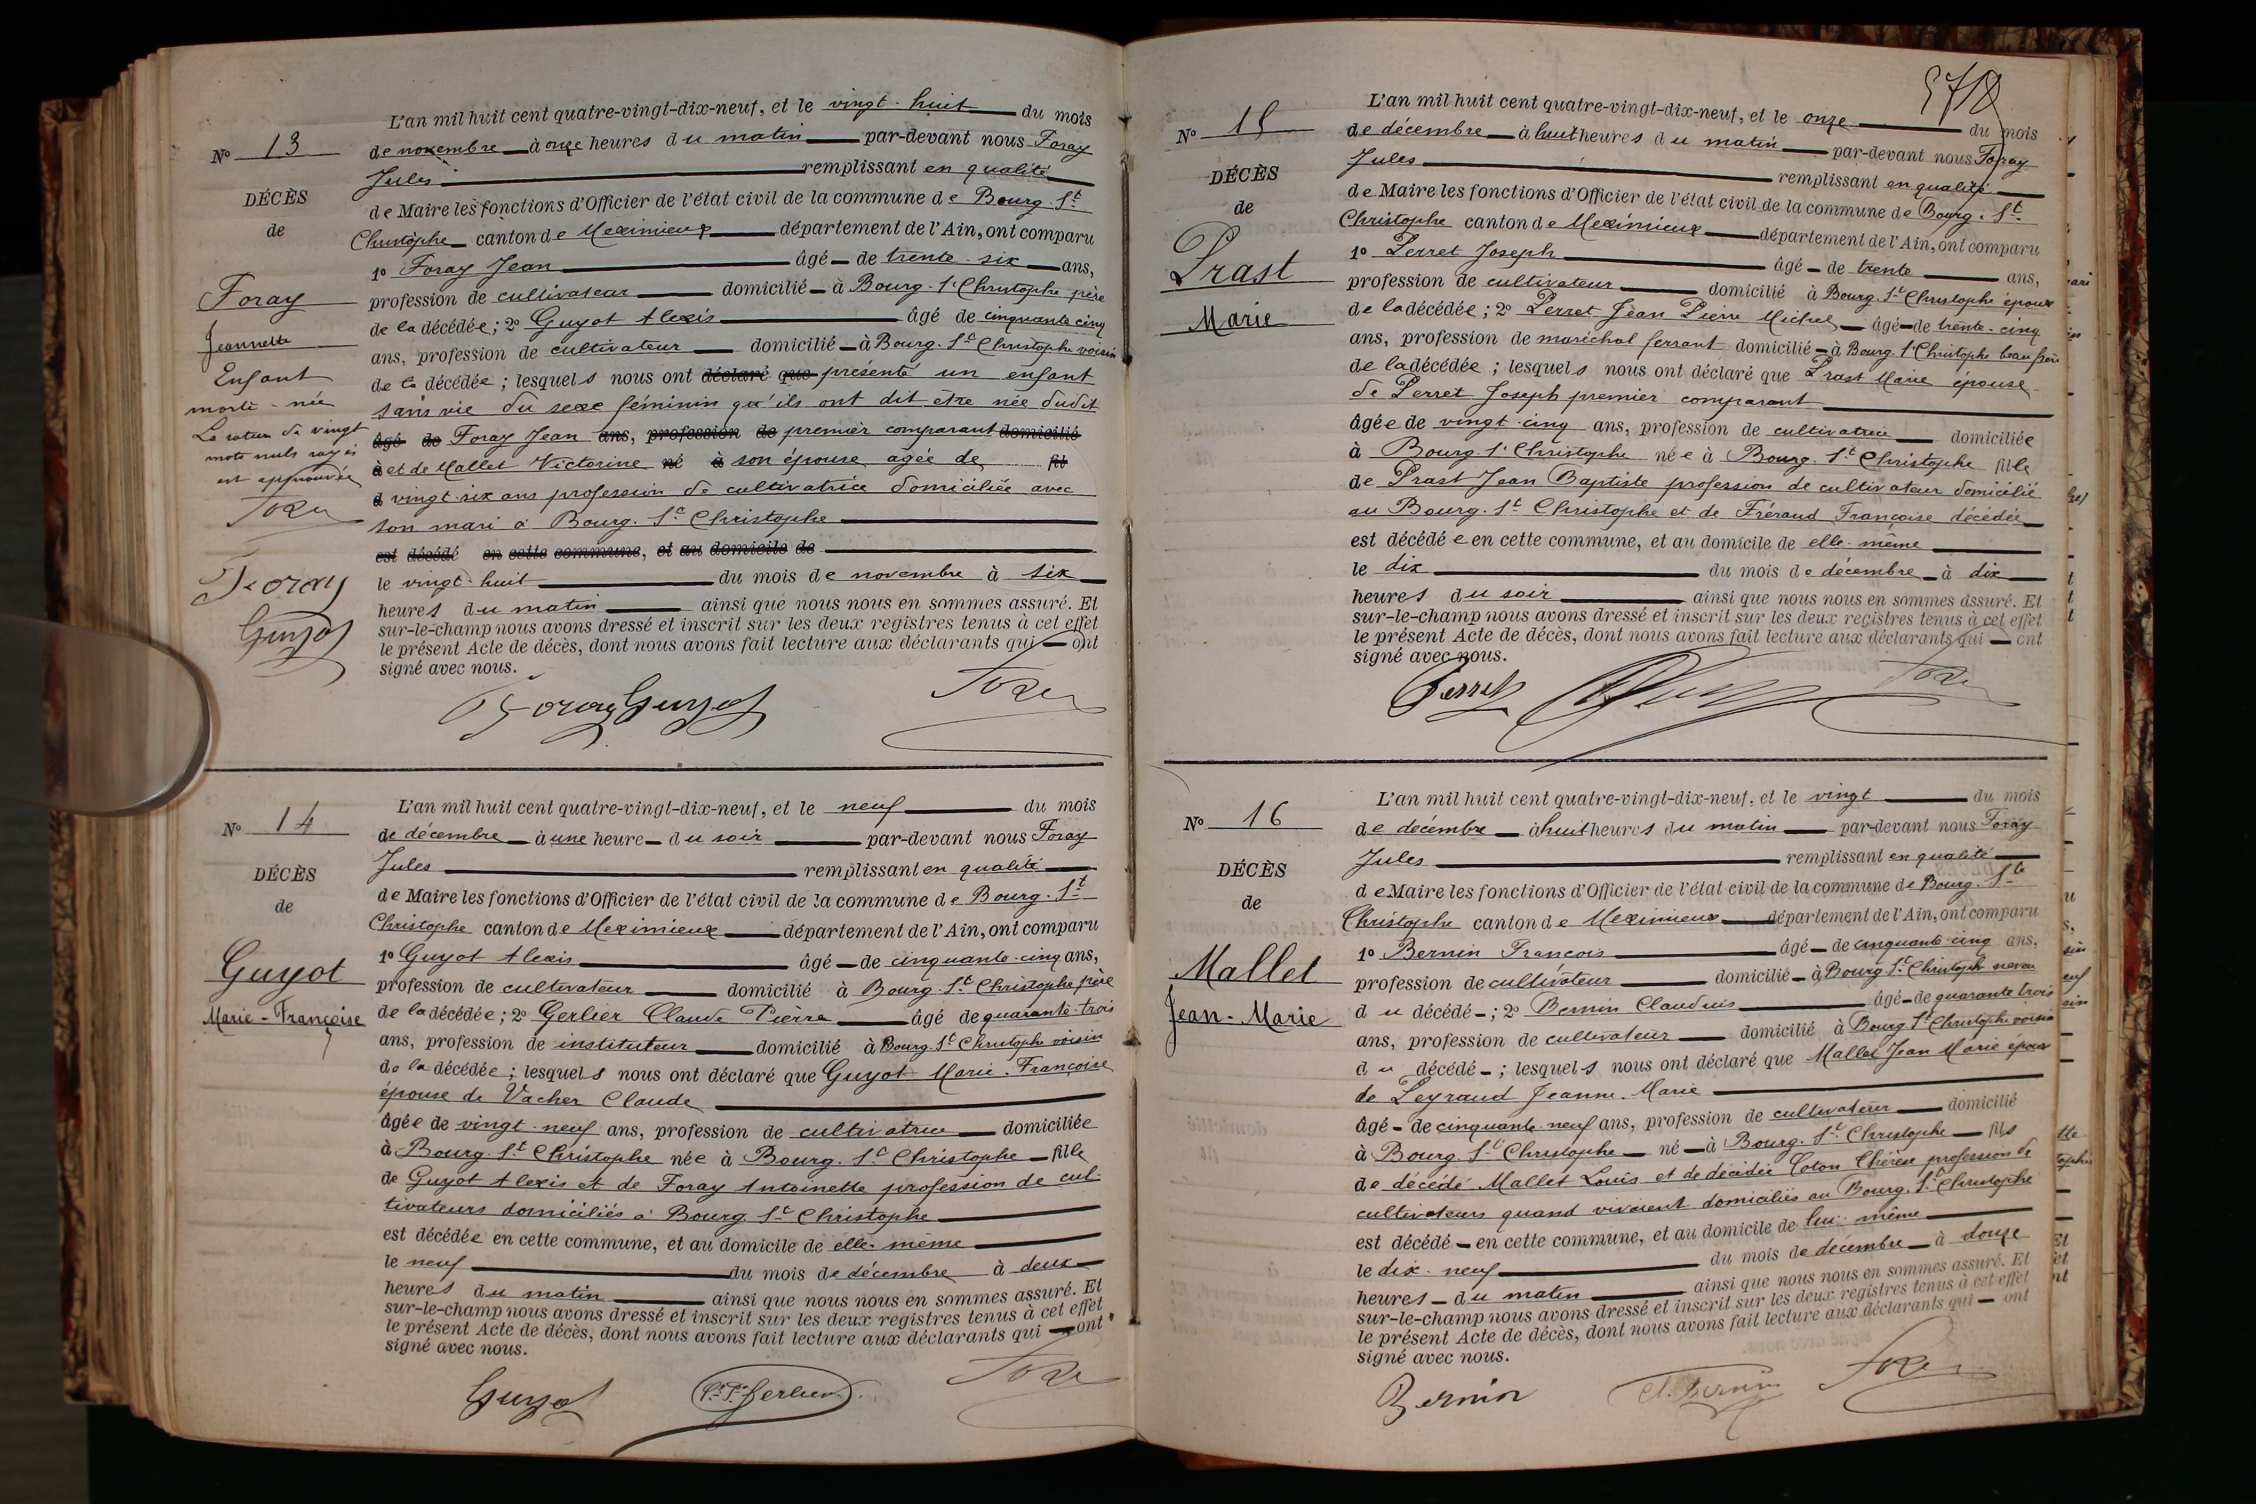 L'an mil huit cent quatre-vingt-dix-neuf, et le vingt-huit du mois
de novembre à onze heures du matin par-devant nous Foray
Jules remplissant en qualité
de Maire les fonctions d'Officier de l'état civil de la commune de Bourg-St
Christophe canton de Meximieux département de l'Ain, ont comparu
1º Foray Jean âgé de trente-six ans,
profession de cultivateur domicilié à Bourg-St Christophe père
de la décédée; 2º Guyot Alexis âgé de cinquante cinq
ans, profession de cultivateur domicilié à Bourg-St Christophe voisin
de la décédée; lesquels nous ont déclaré que présenté un enfant
sans vie du sexe féminin qu'ils ont dit être née dudit
âgé de Foray Jean ans, profession de premier comparant domicilié
à et de Mallet Victorine né à son épouse âgée de fil
d vingt-six ans profession de cultivatrice domiciliée avec
son mari à Bourg-St Christophe
est décédé en cette commune, et au domicile de
le vingt-huit du mois de novembre à six
heures du matin ainsi que nous nous en sommes assuré. Et
sur-le-champ nous avons dressé et inscrit sur les deux registres tenus à cet effet
le présent Acte de décès, dont nous avons fait lecture aux déclarants qui ont
signé avec nous.
Foray Guyot Foray
Nº 13
DÉCÈS
de
Foray
Jeannette
Enfant
morte-née
La rature de vingt
mots nuls rayés
est approuvée
Foray
Foray
Guyot
L'an mil huit cent quatre-vingt-dix-neuf, et le neuf du mois
de décembre à une heure du soir par-devant nous Foray
Jules remplissant en qualité
de Maire les fonctions d'Officier de l'état civil de la commune de Bourg-St
Christophe canton de Meximieux département de l'Ain, ont comparu
1º Guyot Alexis âgé de cinquante-cinq ans,
profession de cultivateur domicilié à Bourg-St Christophe père
de la décédée; 2º Gerlier Claude Pierre âgé de quarante-trois
ans, profession de instituteur domicilié à Bourg-St Christophe voisin
de la décédée; lesquels nous ont déclaré que Guyot Marie-Françoise
épouse de Vacher Claude
âgée de vingt-neuf ans, profession de cultivatrice domiciliée
à Bourg-St Christophe née à Bourg-St Christophe fille
de Guyot Alexis et de Foray Antoinette profession de cul-
tivateurs domiciliés à Bourg-St Christophe
est décédée en cette commune, et au domicile de elle-même
le neuf du mois de décembre à deux
heures du matin ainsi que nous nous en sommes assuré. Et
sur-le-champ nous avons dressé et inscrit sur les deux registres tenus à cet effet
le présent Acte de décès, dont nous avons fait lecture aux déclarants qui ont
signé avec nous.
Guyot Cl. P. Gerlier Foray
Nº 14
DÉCÈS
de
Guyot
Marie-Françoise
L'an mil huit cent quatre-vingt-dix-neuf, et le onze du mois
de décembre à huit heures du matin par-devant nous Foray
Jules remplissant en qualité
de Maire les fonctions d'Officier de l'état civil de la commune de Bourg-St
Christophe canton de Meximieux département de l'Ain, ont comparu
1º Perret Joseph âgé de trente ans,
profession de cultivateur domicilié à Bourg-St Christophe époux
de la décédée; 2º Perret Jean Pierre Michel âgé de trente-cinq
ans, profession de maréchal ferrant domicilié à Bourg-St Christophe beau frère
de la décédée; lesquels nous ont déclaré que Prast Marie épouse
de Perret Joseph premier comparant
âgée de vingt-cinq ans, profession de cultivatrice domiciliée
à Bourg-St Christophe née à Bourg-St Christophe fille
de Prast Jean Baptiste profession de cultivateur domicilié
au Bourg-St Christophe et de Fréraud Françoise décédée
est décédée en cette commune, et au domicile de elle-même
le dix du mois de décembre à dix
heures du soir ainsi que nous nous en sommes assuré. Et
sur-le-champ nous avons dressé et inscrit sur les deux registres tenus à cet effet
le présent Acte de décès, dont nous avons fait lecture aux déclarants qui ont
signé avec nous.
Perret Foray
Nº 15
DÉCÈS
de
Prast
Marie
L'an mil huit cent quatre-vingt-dix-neuf, et le vingt du mois
de décembre à huit heures du matin par-devant nous Foray
Jules remplissant en qualité
de Maire les fonctions d'Officier de l'état civil de la commune de Bourg-St
Christophe canton de Meximieux département de l'Ain, ont comparu
1º Bernin François âgé de cinquante-cinq ans,
profession de cultivateur domicilié à Bourg-St Christophe neveu
du décédé; 2º Bernin Claudius âgé de quarante trois
ans, profession de cultivateur domicilié à Bourg-St Christophe voisin
du décédé; lesquels nous ont déclaré que Mallet Jean Marie époux
de Leyraud Jeanne-Marie
âgé de cinquante-neuf ans, profession de cultivateur domicilié
à Bourg-St Christophe né à Bourg-St Christophe fils
de décédé Mallet Louis et de décédée Coton Thérèse profession de
cultivateurs quand vivaient domiciliés au Bourg-St Christophe
est décédé en cette commune, et au domicile de lui-même
le dix-neuf du mois de décembre à douze
heures du matin ainsi que nous nous en sommes assuré. Et
sur-le-champ nous avons dressé et inscrit sur les deux registres tenus à cet effet
le présent Acte de décès, dont nous avons fait lecture aux déclarants qui ont
signé avec nous.
Bernin Cl. Bernin Foray
Nº 16
DÉCÈS
de
Mallet
Jean-Marie